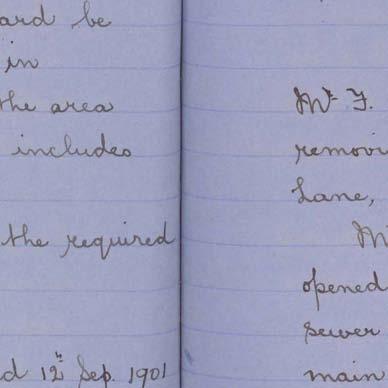 ard be
in
the area
includes
the required
d 12th Sep. 1901
Mr. F.
removi
Lane,
Mr
opened
sewer
main